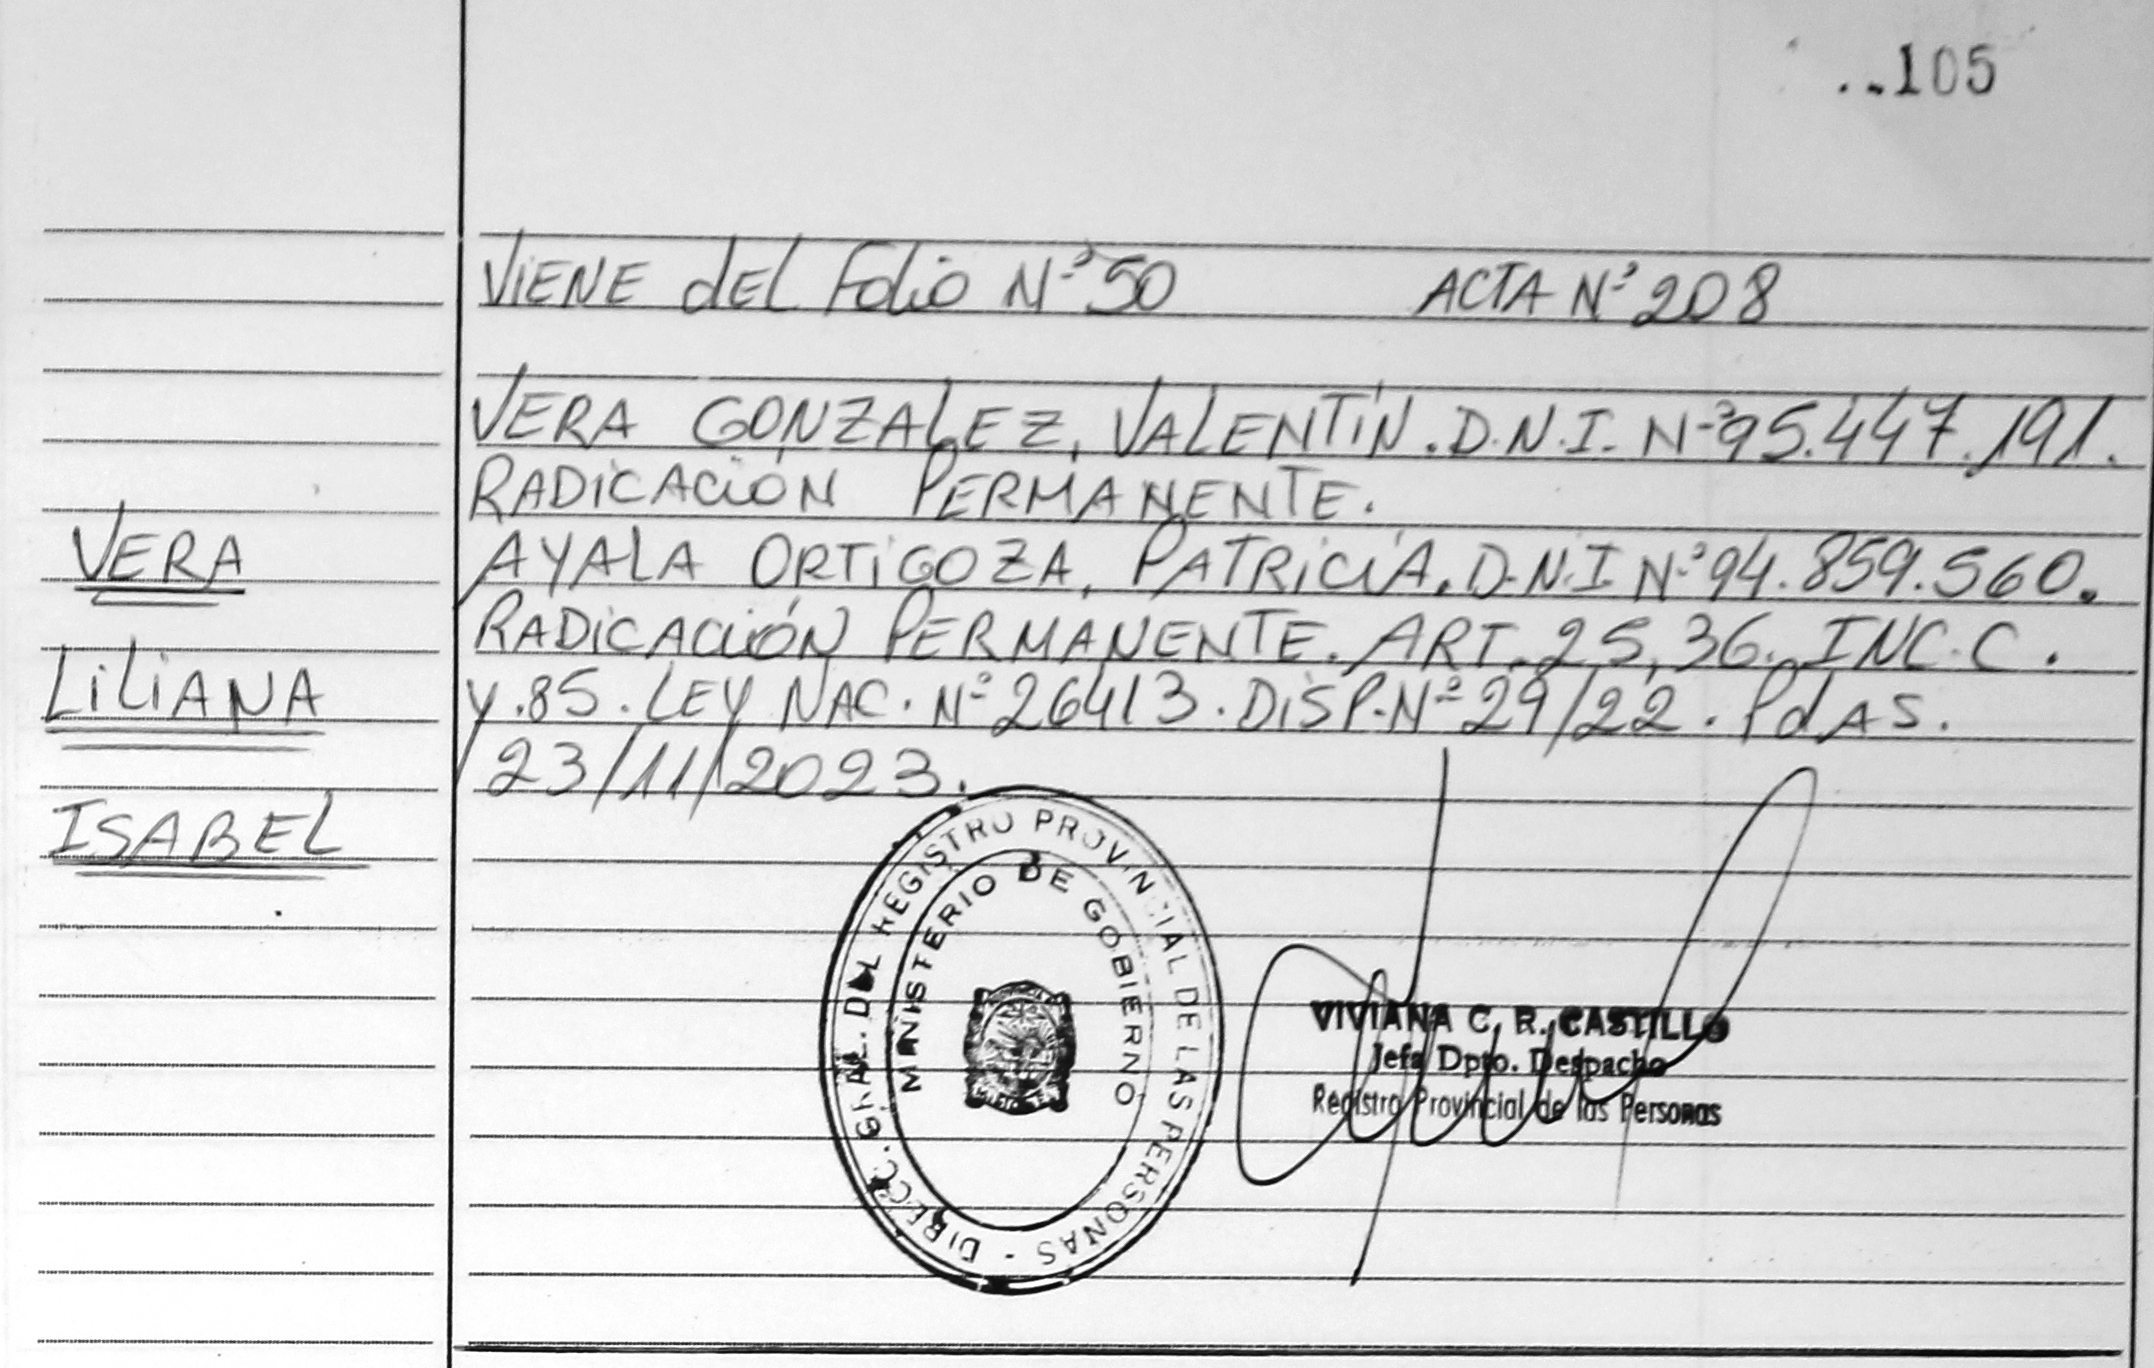 ..105
VIENE dEL Folio Nº 50 ACTA Nº 208
VERA GONZALEZ, VALENTIN. D.N.I. Nº 95.447.191.
RADICACIÓN PERMANENTE.
AYALA ORTIGOZA, PATRICIA. D.N.I Nº 94.859.560.
RADICACIÓN PERMANENTE. ART. 25, 36. INC. C.
Y. 85. LEY NAC. Nº 26413. DISP. Nº 29/22. PdAS.
23/11/2023.
VERA
LILIANA
ISABEL
DIRECC. GRAL. DEL REGISTRO PROVINCIAL DE LAS PERSONAS -
MINISTERIO DE GOBIERNO
VIVIANA C. R. CASTILLO
Jefa Dpto. Despacho
Registro Provincial de las Personas